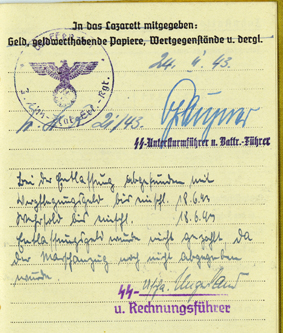 In das Lazarett mitgegeben:
Geld, geldwerthabende Papiere, Wertgegenstände u. dergl.
24. 43.
21/43.
SS-Untersturmführer u. Battr.-Führer
Bei der Entlassung abgefunden mit
Verpflegungsgeld bis einschl. 18.6.43
Wehrsold bis einschl. 18.6.43
Entlassungsgeld wurde nicht gezahlt, da
der Marschanzug noch nicht abgegeben
wurde.
SS-
u. Rechnungsführer